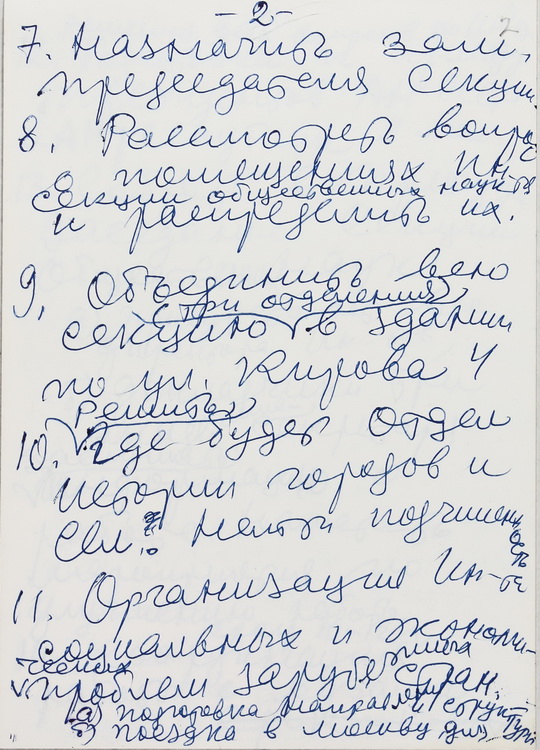 -2-
2
7. Назначить зам.
председателя Секции.
8. Рассмотреть вопрос
о помещениях Ин-та
секции общественных наук
и распределить их.
9. Объединить всю
(три отделения)
секцию в здании
по ул. Кирова 4
Решить
10. Где будет Отдел
истории городов и
сел? подчиненность
11. Организация Ин-та
социальных и экономи-
ческих
проблем зарубежных стран.
а) подготовка и структуры
б) поездка в Москву для